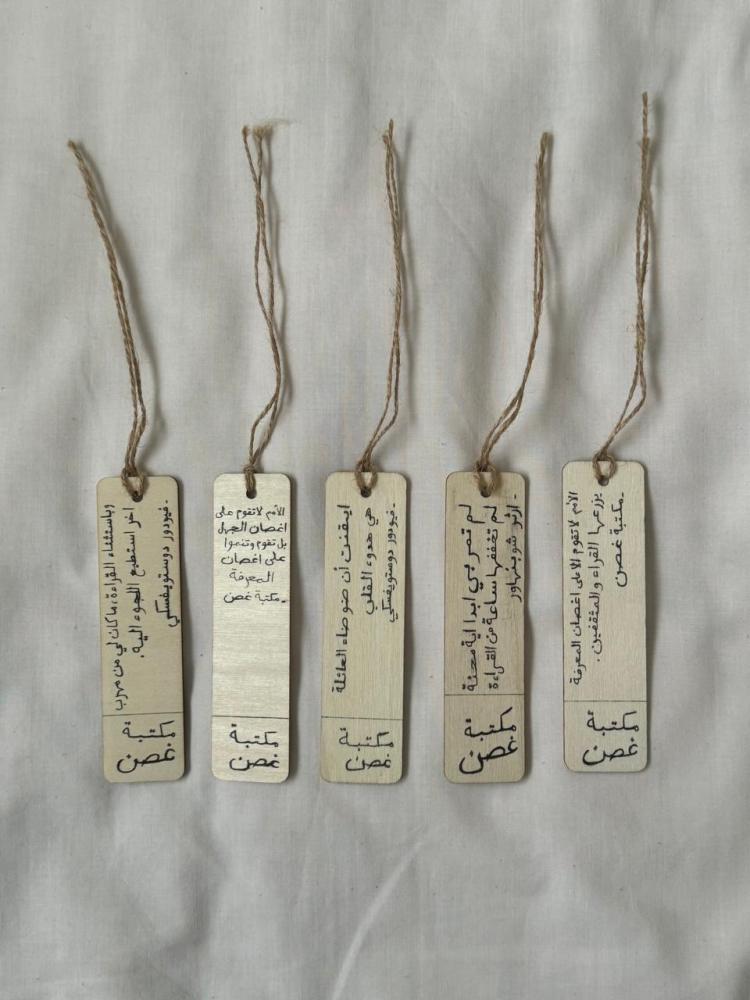 وباستثناء القراءة، ماكان لي من مهرب
اخر استطيع اللجوء اليه.
-فيودور دوستويفسكي
مكتبة
غصن
الأمم لاتقوم على
اغصان الجهل
بل تقوم وتنموا
على اغصان
المعرفة
-مكتبة غصن
مكتبة
غصن
ايقنت أن ضوضاء العائلة
هي هدوء القلب
-فيودور دوستويفسكي
مكتبة
غصن
لم تمر بي ابدا اية محنة
لم تخففها ساعة من القراءة
-ارثر شوبنهاور
مكتبة
غصن
الأمم لاتقوم الا على اغصان المعرفة
يزرعها القراء والمثقفين.
-مكتبة غصن
مكتبة
غصن